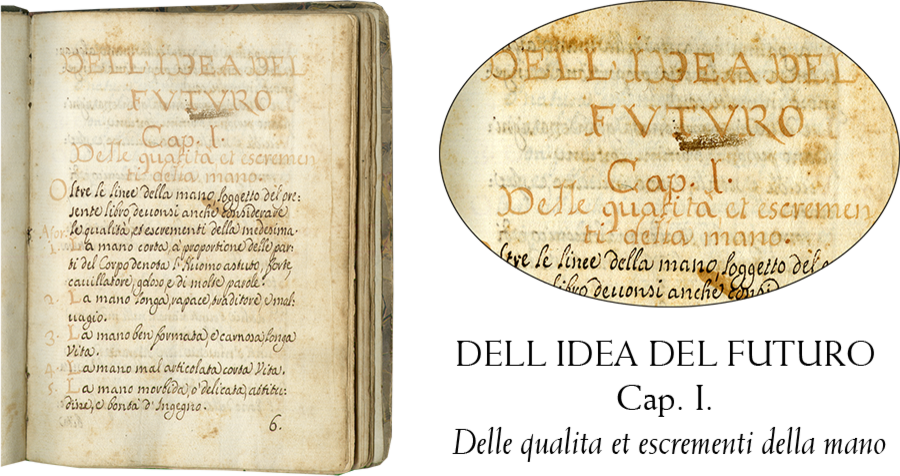 DELL IDEA DEL
FVTVRO
Cap. I.
Delle qualita et escremen
ti della mano.
Oltre le linee della mano soggetto del pre=
sente libro deuonsi anche considerare
le qualità, et escrementi della medesima.
La mano corta, à proportione delle par=
ti del Corpo denota l'Huomo astuto, forte
cauillatore, goloso, e di molte parole.
2. La mano longa, rapace, traditore, e mal=
uagio.
3. La mano ben formata, e carnosa longa
Vita.
4. La mano mal articolata corta Vita.
5. La mano morbida, ò delicata, attitu=
dine, e bontà d'Ingegno.
6.
DELL IDEA DEL
FVTVRO
Cap. I.
Delle qualita et escremen
ti della mano.
ltre le linee della mano soggetto del
libro deuonsi anche consid
DELL IDEA DEL FUTURO
Cap. I.
Delle qualita et escrementi della mano